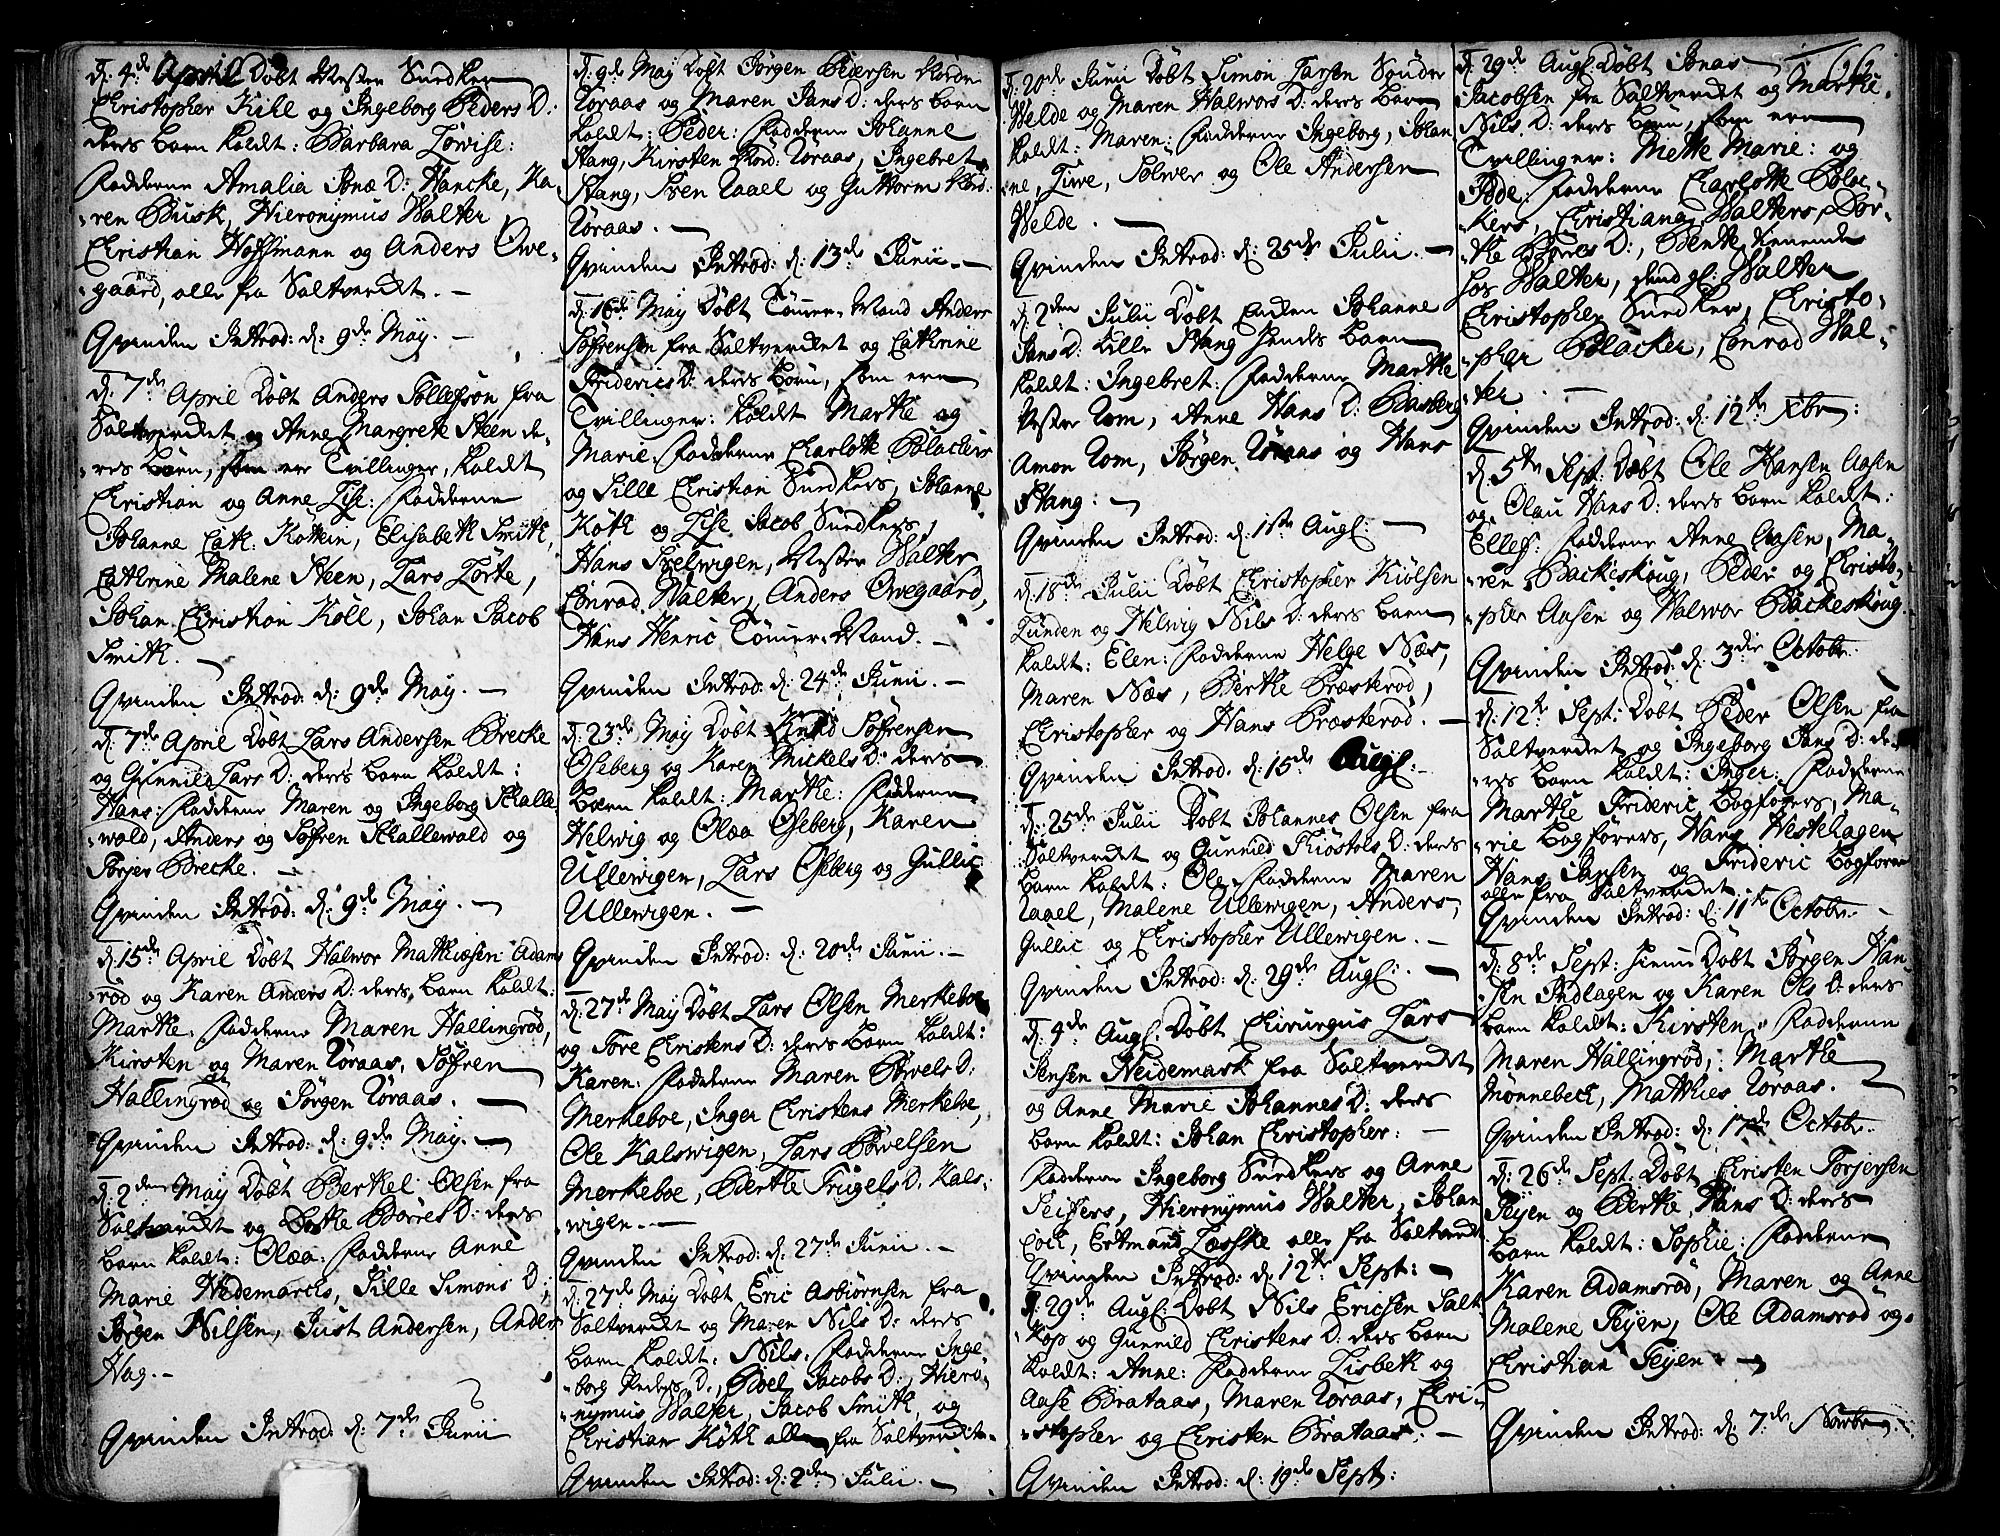 d: 4de April Døbt Mester Sundker
Christopher Kihl og Ingeborg Peders D:
ders barn kaldt: Barbara Lowise:
Fadderne Amalia Jonæ D: Hancke, Ka-
-ren Busk, Hieronymus Walter,
Christian Hoffmann og Anders Owe-
-gaard, alle fra Saltverdet. —
Qvinden Introd: d: 9de May. —
d: 7de April Døbt Anders Tollefsøn fra
Saltverdet og Anne Margrete Steen de-
-res børn, som er Tvillinger, kaldt
Christian og Anne Lise: Fadderne
Johanne Cath: Køttein, Elisabeth Smith,
Cathrine Malene Steen, Lars Lørte,
Johan Christian Köll, Johan Jacob
Smith. —
Qvinden Introd: d: 9de May. —
d: 7de April Døbt Lars Andersen Brecke
og Gunnild Lars D: ders barn kaldt:
Hans: Fadderne Maren og Ingeborg Skalle
-wold, Anders og Søfren Skallewald og
Torjer Brecke. —
Qvinden Introd: d: 9de May. —
d: 15de April Døbt Halwor Mathiesen Adams
-rød og Karen Anders D: ders barn kaldt:
Marthe: Fadderne Maren Hallingrød,
Kirsten og Maren Røraas, Søffren
Hallingrød og Jørgen Røraas. —
Qvinden Introd: d: 9de May. —
d: 2den May Døbt Berthel Olsen fra
Saltverdet og Dorthe Børres D: ders
barn kaldt: Olaa. Fadderne Anne
Marie Hedemarchs, Sille Simons D:,
Jørgen Nilsen, Just Andersen, Anders
Hag. —
Qvinden Introd: d: 7de Junii
d: 9de May Døbt Jørgen Pedersen Nordre
Røraas og Maren Jans D: ders barn
kaldt: Peder: Fadderne Johanne
Stang, Kirsten Nord: Røraas, Ingebret
Stang, Sven Raael og Guttorm Nord:
Røraas. —
Qvinden Introd: d: 13de Junii. —
d: 16de May Døbt Tømer-Mand Anders
Søfrensen fra Saltverdet og Cathrine
Friderics D: ders børn, som ere
Tvillinger: kaldt Marthe og
Marie. Fadderne Charlotte Blackers
og Sille Christian Sundkers, Johanne
Köth og Lise Jacob Sundkers,
Hans Helwigen, Mester Walter
Conrad Walter, Anders Owegaard,
Hans Henric Tømer-Mand. —
Qvinden Introd: d: 24de Junii. —
d: 23de May Døbt Knud Søfrensen
Oseberg og Karen Mickels D: ders
barn kaldt: Marthe: Fadderne
Helwig og Olaa Oseberg, Karen
Ullewigen, Lars Oseberg og Gullic
Ullewigen. —
Qvinden Introd: d: 20de Junii. —
d: 27de May Døbt Lars Olsen Merkeboe
og Tore Christens D: ders barn kaldt:
Karen: Fadderne Maren Bowels D:
Merkeboe, Inger Christens Merkeboe,
Ole Kalswigen, Lars Bowelsen
Merkeboe, Berthe Trugels D: Kals-
-wigen. —
Qvinden Introd: d: 27de Junii. —
d: 27de May Døbt Eric Asbiørnsen fra
Saltverdet og Maren Nils D: ders
barn kaldt: Nils. Fadderne Inge-
-borg Peders D:, Boel Jacobs D:, Hiero-
-nymus Walter, Jacob Smith, og
Christian Köth alle fra Saltverdet.
Qvinden Introd: d: 2den Julii. —
d: 20de Junii Døbt Simon Larsen Søndre
Welde og Maren Halwors D: ders barn
kaldt: Maren: Fadderne Ingeborg, Johan
-ne, Siwe, Sølwer og Ole Andersen
Welde. —
Qvinden Introd: d: 25de Julii. —
d: 2den Julii Døbt Enken Johanne
Jans D: Lille Stang hendes barn
kaldt: Ingebret: Fadderne Marthe
Vester Rom, Anne Hans D: Basberg
Amon Rom, Jørgen Røraas og Hans
Stang: —
Qvinden Introd: d: 1ste Augl: —
d: 18de Julii Døbt Christopher Kiølsen
Lunden og Helwig Nils D: ders barn
kaldt: Elen: Fadderne Helge Næs,
Maren Næs, Berthe Præsterød,
Christopher og Hans Præsterød. —
Qvinden Introd. d: 15de Augl: —
d: 25de Julii Døbt Johannes Olsen fra
Saltverdet og Gunnild Kiøstols D: ders
barn kaldt: Ole. Fadderne Maren
Raael, Malene Ullewigen, Anders,
Gullic og Christopher Ullewigen. —
Qvinden Introd: d: 29de Augl: —
d: 9de Augl: Døbt Chirurgus Lars
Jensen Heidemark fra Saltverdet
og Anne Marie Johannes D: ders
barn kaldt: Johan Christopher: —
Fadderne Ingeborg Sundkers og Anne
Seifers, Hieronymus Walter, Johan
Cock, Ertmand Læsske alle fra Saltverdet
Qvinden Introd: d: 12te Sept: —
d: 29de Augl: Døbt Nils Ericsen Salt
-Kop og Gunnild Christens D: ders barn
kaldt: Anne: Fadderne Lisbeth og
Aase Brataas, Maren Røraas, Chri-
-stopher og Christen Brataas. —
Qvinden Introd: d: 19de Sept:
66
d: 29de Augl: Døbt Jonas
Jacobsen fra Saltverdet og Marthe
Nils D: ders børn, som ere
Tvillinger: Mette Marie: og
Fadderne Charlotte Blac-
-kers, Christiana Walters, Dor-
-the Børres D:, Bente
Walter, dend gl: Walter
Christopher Sundker, Christo-
-pher Blacker, Conrad Wal-
-ter. —
Qvinden Introd: d: 12te Xbr:
d: 5te Sept: Døbt Ole Hansen Aasen
og Olau Hans D: ders barn kaldt:
Ellef: Fadderne Anne Aasen, Ma-
-ren Backeskoug, Peder og Christo-
-pher Aasen og Halwor Backeskoug.
Qvinden Introd: d: 3die Octobr.
d: 12te Sept: Døbt Peder Olsen fra
Saltverdet og Ingeborg Jans D: de-
-res barn kaldt: Inger: Fadderne
Marthe Frideric Bogførers, Ma-
-rie Bogførers, Hans Hestehagen
Hans Jansen og Frideric Bogfører
alle fra Saltverdet
Qvinden Introd: d: 11te Octobr. —
d: 8de Sept: hieme Døbt Jørgen Han-
-sen Indlagen og Karen Ols D: ders
barn kaldt: Kirsten. Fadderne
Maren Hallingrød, Marthe
Mønnebeck, Mathies Røraas. —
Qvinden Introd: d: 17de Octobr.
d: 26de Sept: Døbt Christen Torjersen
Feyen og Berthe Hans D: ders
barn kaldt: Sophie: Fadderne
Karen Adamsrød, Maren og Anne
Malene Feyen, Ole Adamsrød og
Christian Feyen. —
Qvinden Introd: d: 7de Novbr.